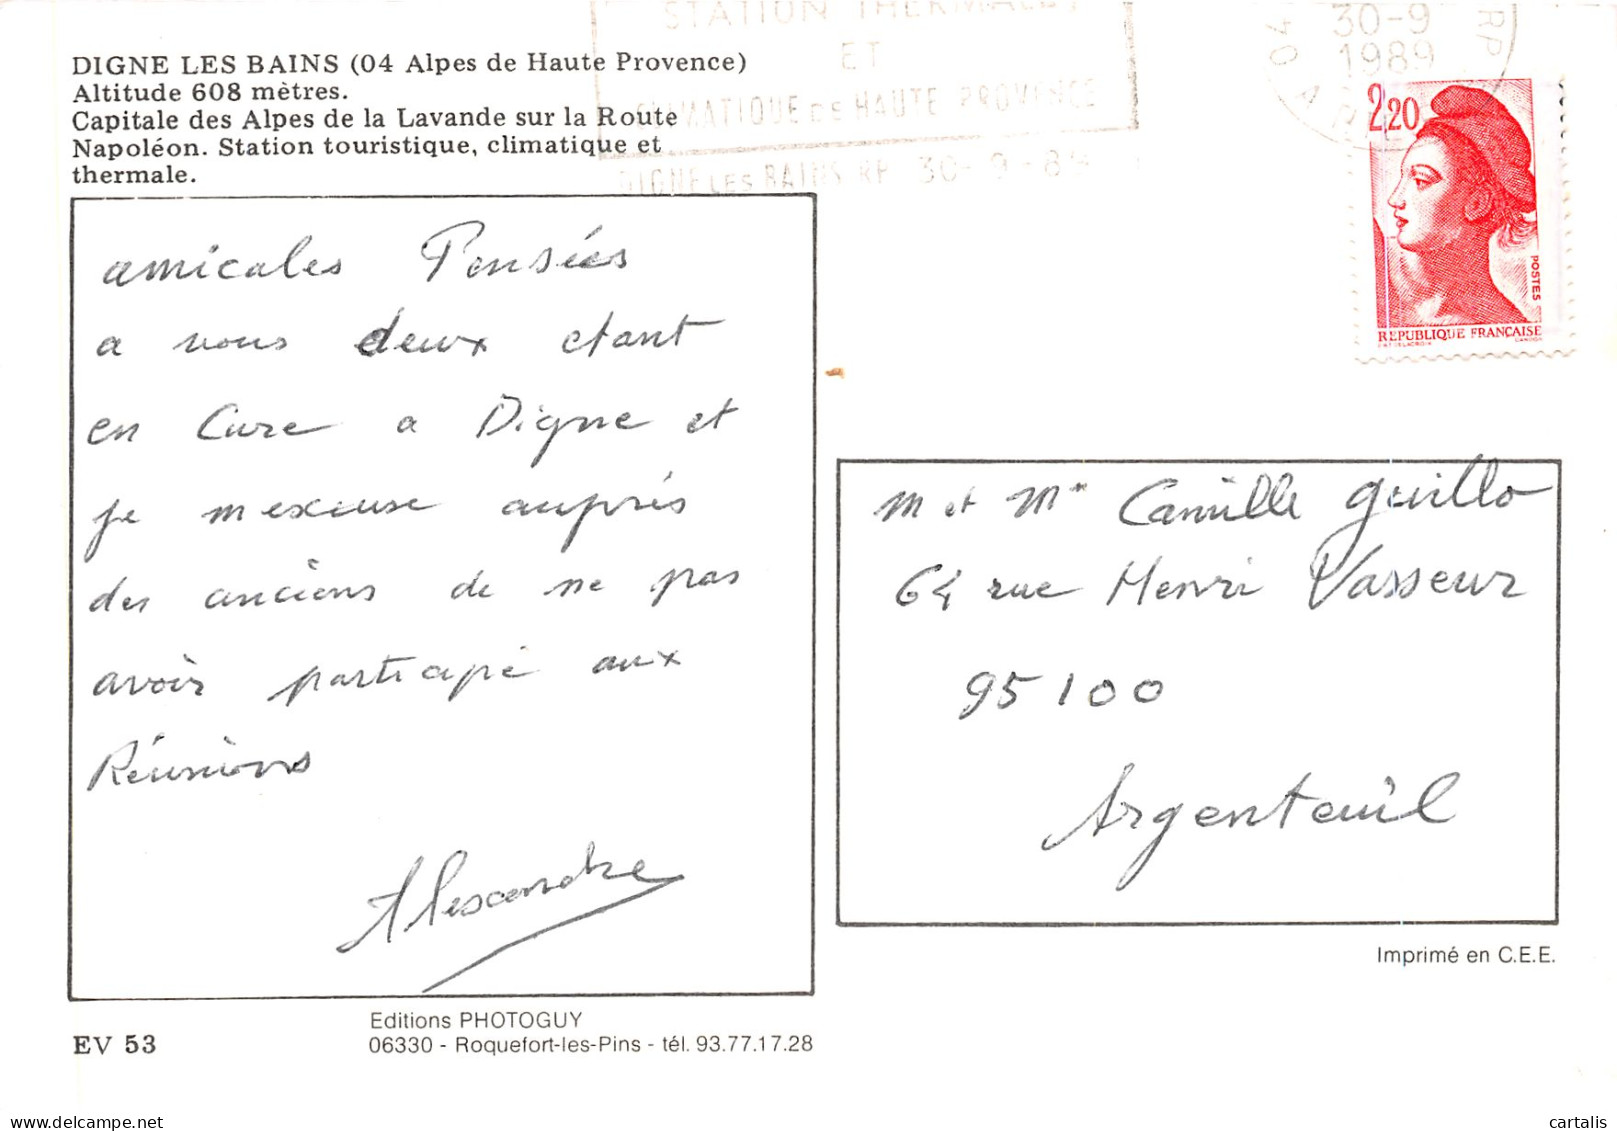 DIGNE LES BAINS (04 Alpes de Haute Provence)
Altitude 608 mètres.
Capitale des Alpes de la Lavande sur la Route
Napoléon. Station touristique, climatique et
thermale.
STATION THERMALE
ET
CLIMATIQUE DE HAUTE PROVENCE
DIGNE LES BAINS RP 30-9-89
04
RP
30-9
1989
2,20
POSTES
REPUBLIQUE FRANÇAISE
amicales Pensées
a vous deux etant
en Cure a Digne et
je mexcuse auprés
des anciens de ne pas
avoir participé aux
Réunions
Alescandre
M et Mme Camille Guillo
64 rue Henri Vasseur
95100
Argenteuil
Imprimé en C.E.E.
EV 53
Editions PHOTOGUY
06330 - Roquefort-les-Pins - tél. 93.77.17.28
delcampe.net
cartalis